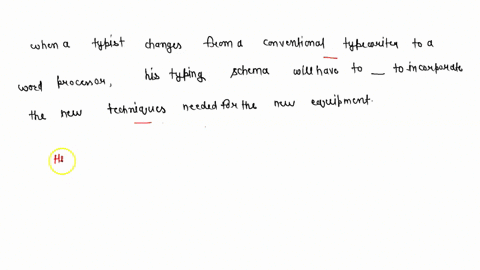 when a typist changes from a conventional typewriter to a
word processor, his typing schema will have to __ to incorporate
the new techniques needed for the new equipment.
He